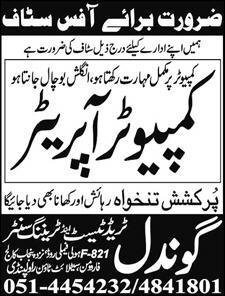 ضرورت برائے آفس سٹاف
ہمیں اپنے ادارے کیلئے درج ذیل سٹاف کی ضرورت ہے
کمپیوٹر پر مکمل مہارت رکھتا ہو، انگلش بول چال جانتا ہو
کمپیوٹر آپریٹر
پُرکشش تنخواہ رہائش اور کھانا بھی دیا جائیگا
گوندل
ٹریڈ ٹیسٹ اینڈ ٹریننگ سنٹر
F-821 ہولی فیملی روڈ نزد پنجاب کالج
فار وومن سیٹلائٹ ٹاؤن راولپنڈی
051-4454232/4841801